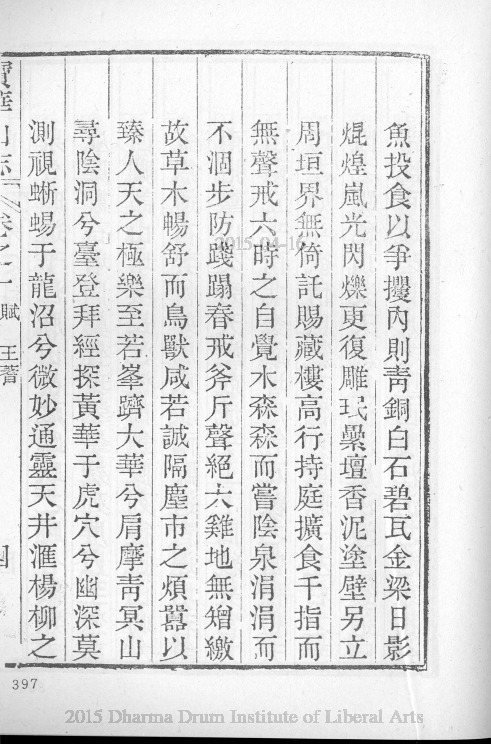 魚投食以爭攫內則靑銅白石碧瓦金梁日影
焜煌嵐光閃爍更復雕珉纍壇香泥塗壁另立
周垣界無倚託賜藏樓高行持庭擴食千指而
無聲戒六時之自覺木森森而嘗陰泉涓涓而
不涸步防踐蹋春戒斧斤聲絕六雞地無矰繳
故草木暢舒而鳥獸咸若誠隔塵市之煩囂以
臻人天之極樂至若峯躋大華兮肩摩靑冥山
尋陰洞兮臺登拜經探黃華于虎穴兮幽深莫
測視蜥蜴于龍沼兮微妙通靈天井滙楊柳之
寶華山志 卷之一 賦 王蓍 四
397
2015-04-16
2015 Dharma Drum Institute of Liberal Arts